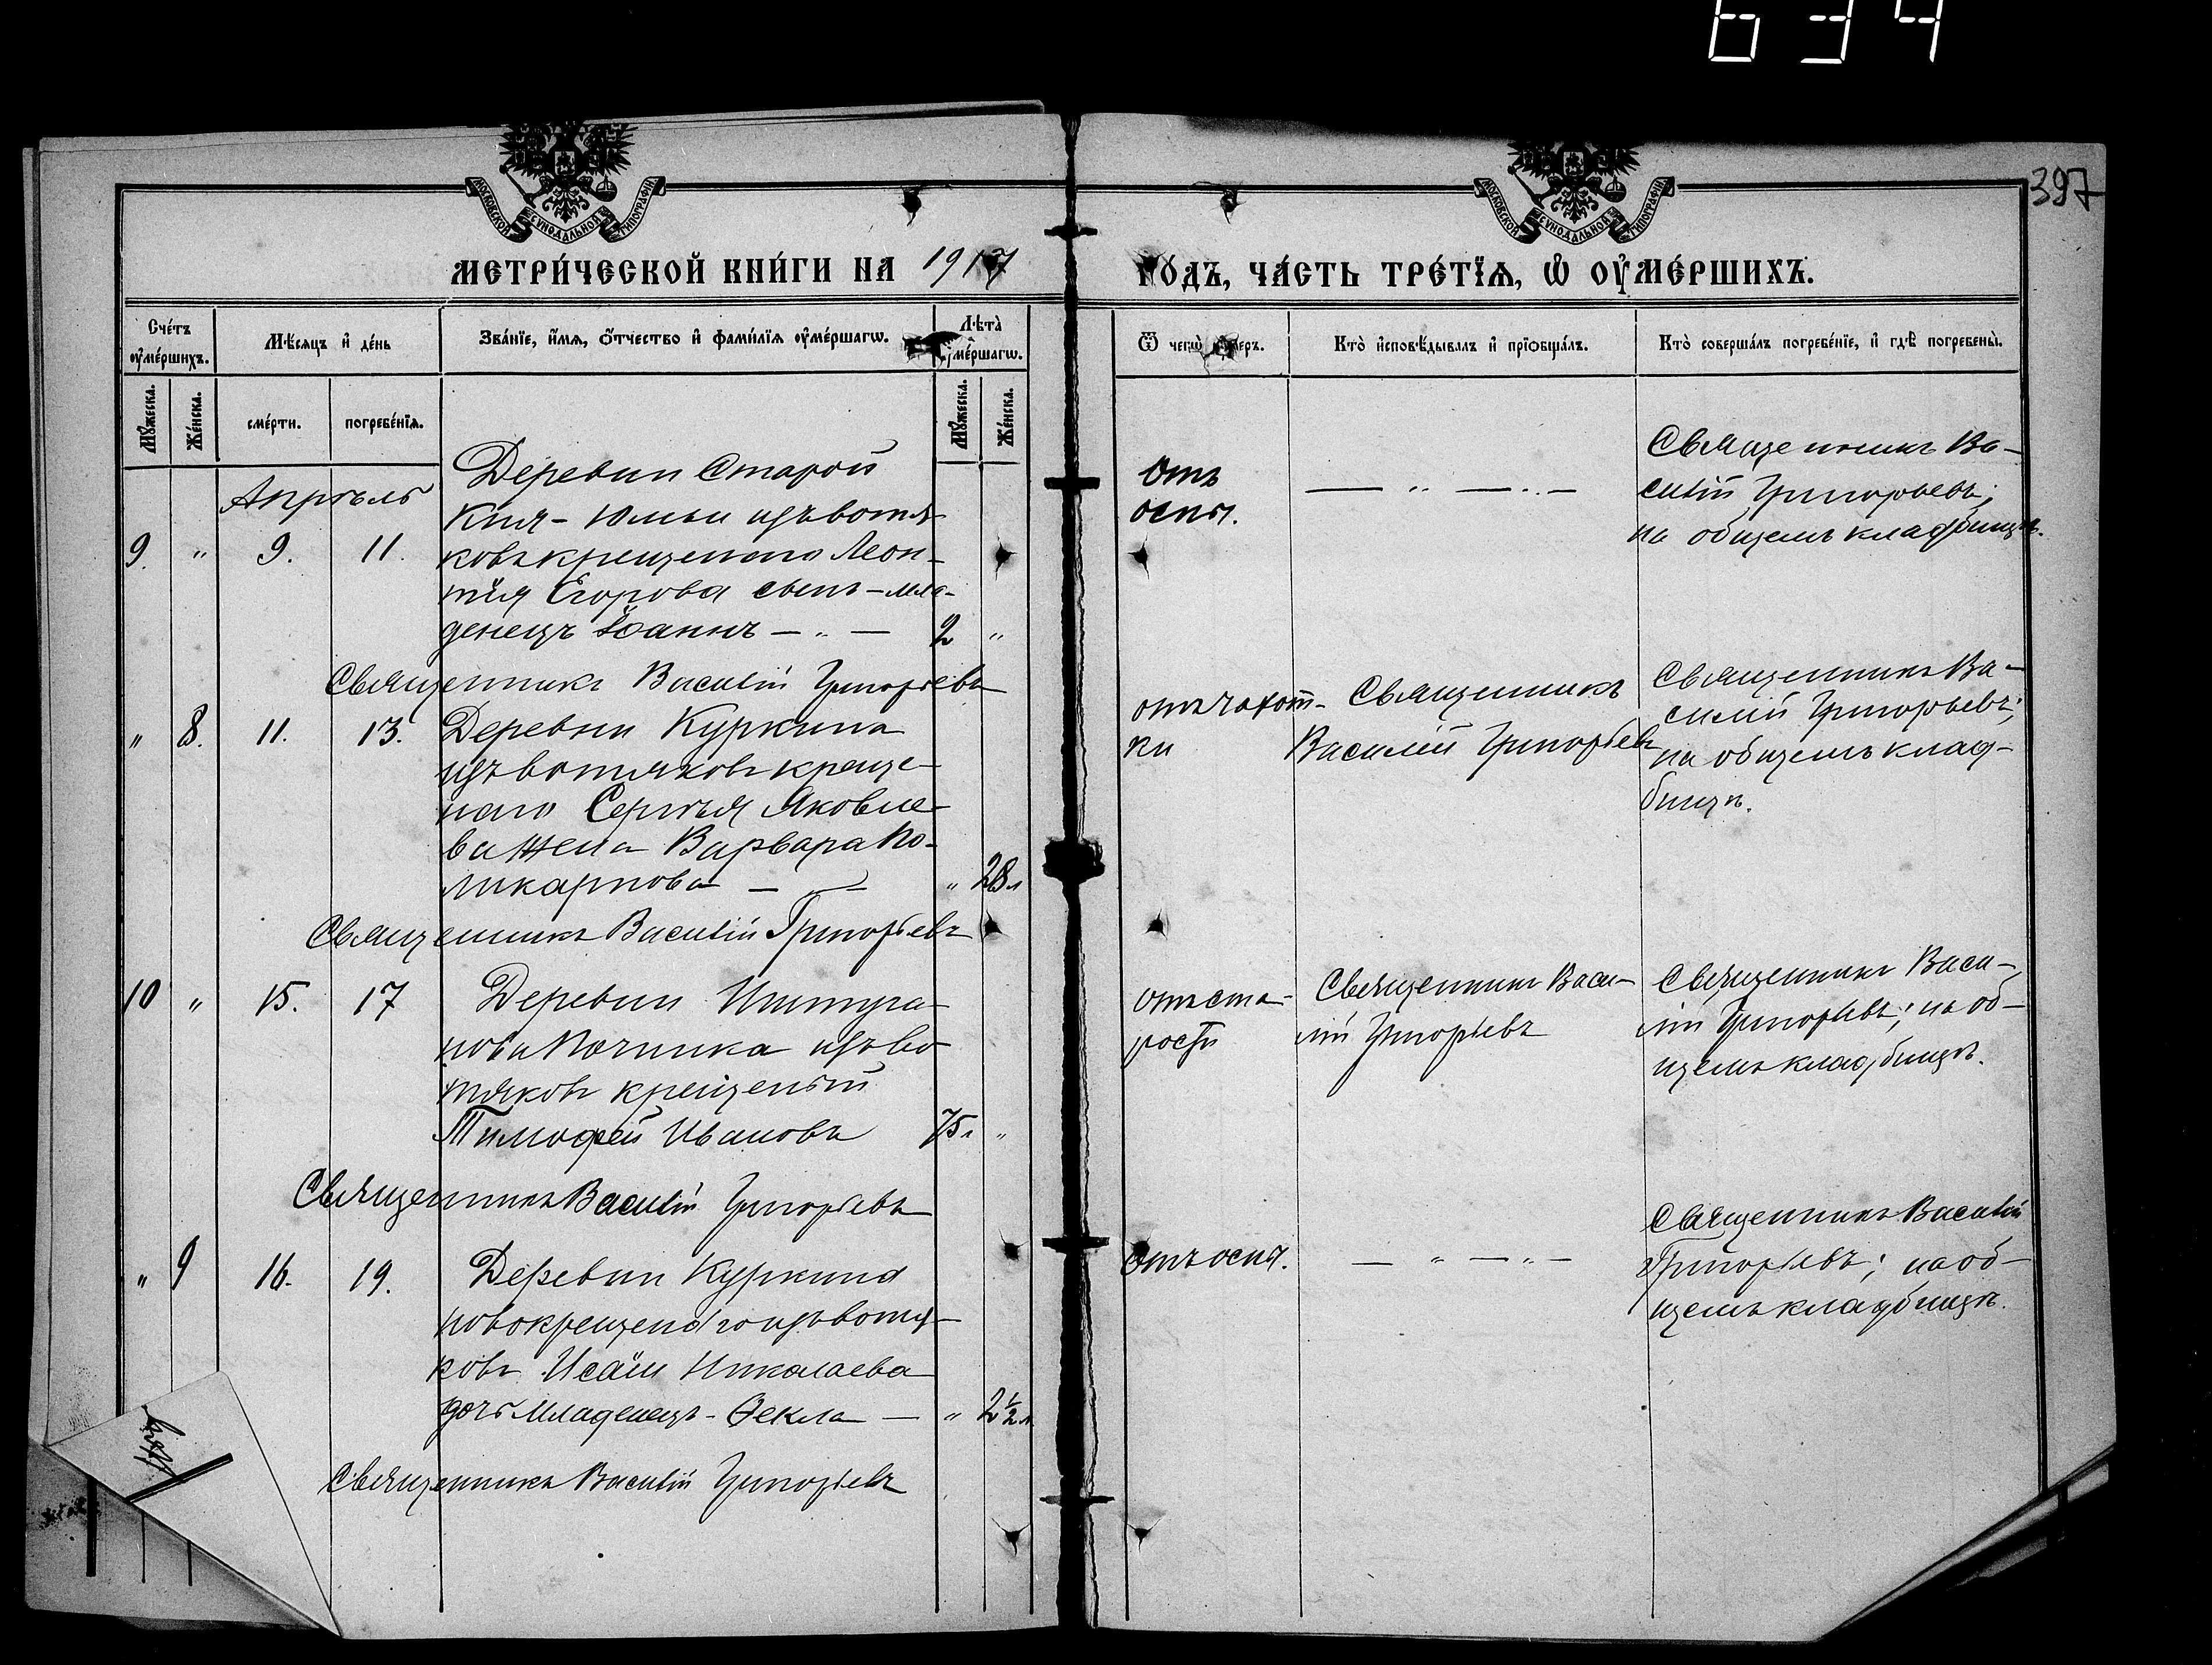 634
397
МОСКОВСКОЙ СѴНОДАЛЬНОЙ ТИПОГРАФІИ
МОСКОВСКОЙ СѴНОДАЛЬНОЙ ТИПОГРАФІИ
МЕТРИ́ЧЕСКОЙ КНИ́ГИ НА 1917 ГО́ДЪ, ЧА́СТЬ ТРЕ́ТЇѦ, Ѡ҆ ОУ҆МЕ́РШИХЪ.
Сче́тъ ᲂу҆ме́ршихъ.
Мѣ́сяцъ и҆ де́нь
Зва́нїе, и҆́мѧ, ѻ҆́тчество и҆ фами́лїѧ ᲂу҆ме́ршагѡ.
Лѣта̀ ᲂу҆ме́ршагѡ.
Ѿ чегѡ̀ ᲂу҆́меръ.
Кто̀ и҆сповѣ́дывалъ и҆ прїѡбща́лъ.
Кто̀ соверша́лъ погребе́нїе, и҆ гдѣ̀ погребены̀.
Мꙋ́жеска.
Же́нска.
сме́рти.
погребе́нїѧ.
Мꙋ́жеска.
Же́нска.
Апрѣль
9. " 9. 11.
Деревни Старой
Кня-Юмьи изъ вотя-
ковъ крещенаго Леон-
тія Егорова сынъ-мла-
денецъ Іоаннъ — " — 2 "
Отъ
оспы.
— " — " —
Священникъ Ва-
силій Григорьевъ;
на общемъ кладбищѣ.
Священникъ Василій Григорьевъ
" 8. 11. 13.
Деревни Куркина
изъ вотяковъ креще-
наго Сергѣя Яковле-
ва жена Варвара По-
ликарпова — " 28 л
отъ чахот-
ки
Священникъ
Василій Григорьевъ
Священникъ Ва-
силій Григорьевъ;
на общемъ клад-
бищѣ.
Священникъ Василій Григорьевъ
10 " 15. 17
Деревни
нова Починка изъ во
тяковъ крещеный
Тимофей Ивановъ 75 л "
отъ ста-
рости
Священникъ Васи-
лій Григорьевъ
Священникъ Васи-
лій Григорьевъ; на об-
щемъ кладбищѣ.
Священникъ Василій Григорьевъ
" 9 16. 19.
Деревни Куркина
новокрещенаго изъ вотя-
ковъ Исаіи Николаева
дочь младенецъ-Ѳекла — " 2½ л
Отъ оспы.
— " — " —
Священникъ Василій
Григорьевъ; на об-
щемъ кладбищѣ.
Священникъ Василій Григорьевъ